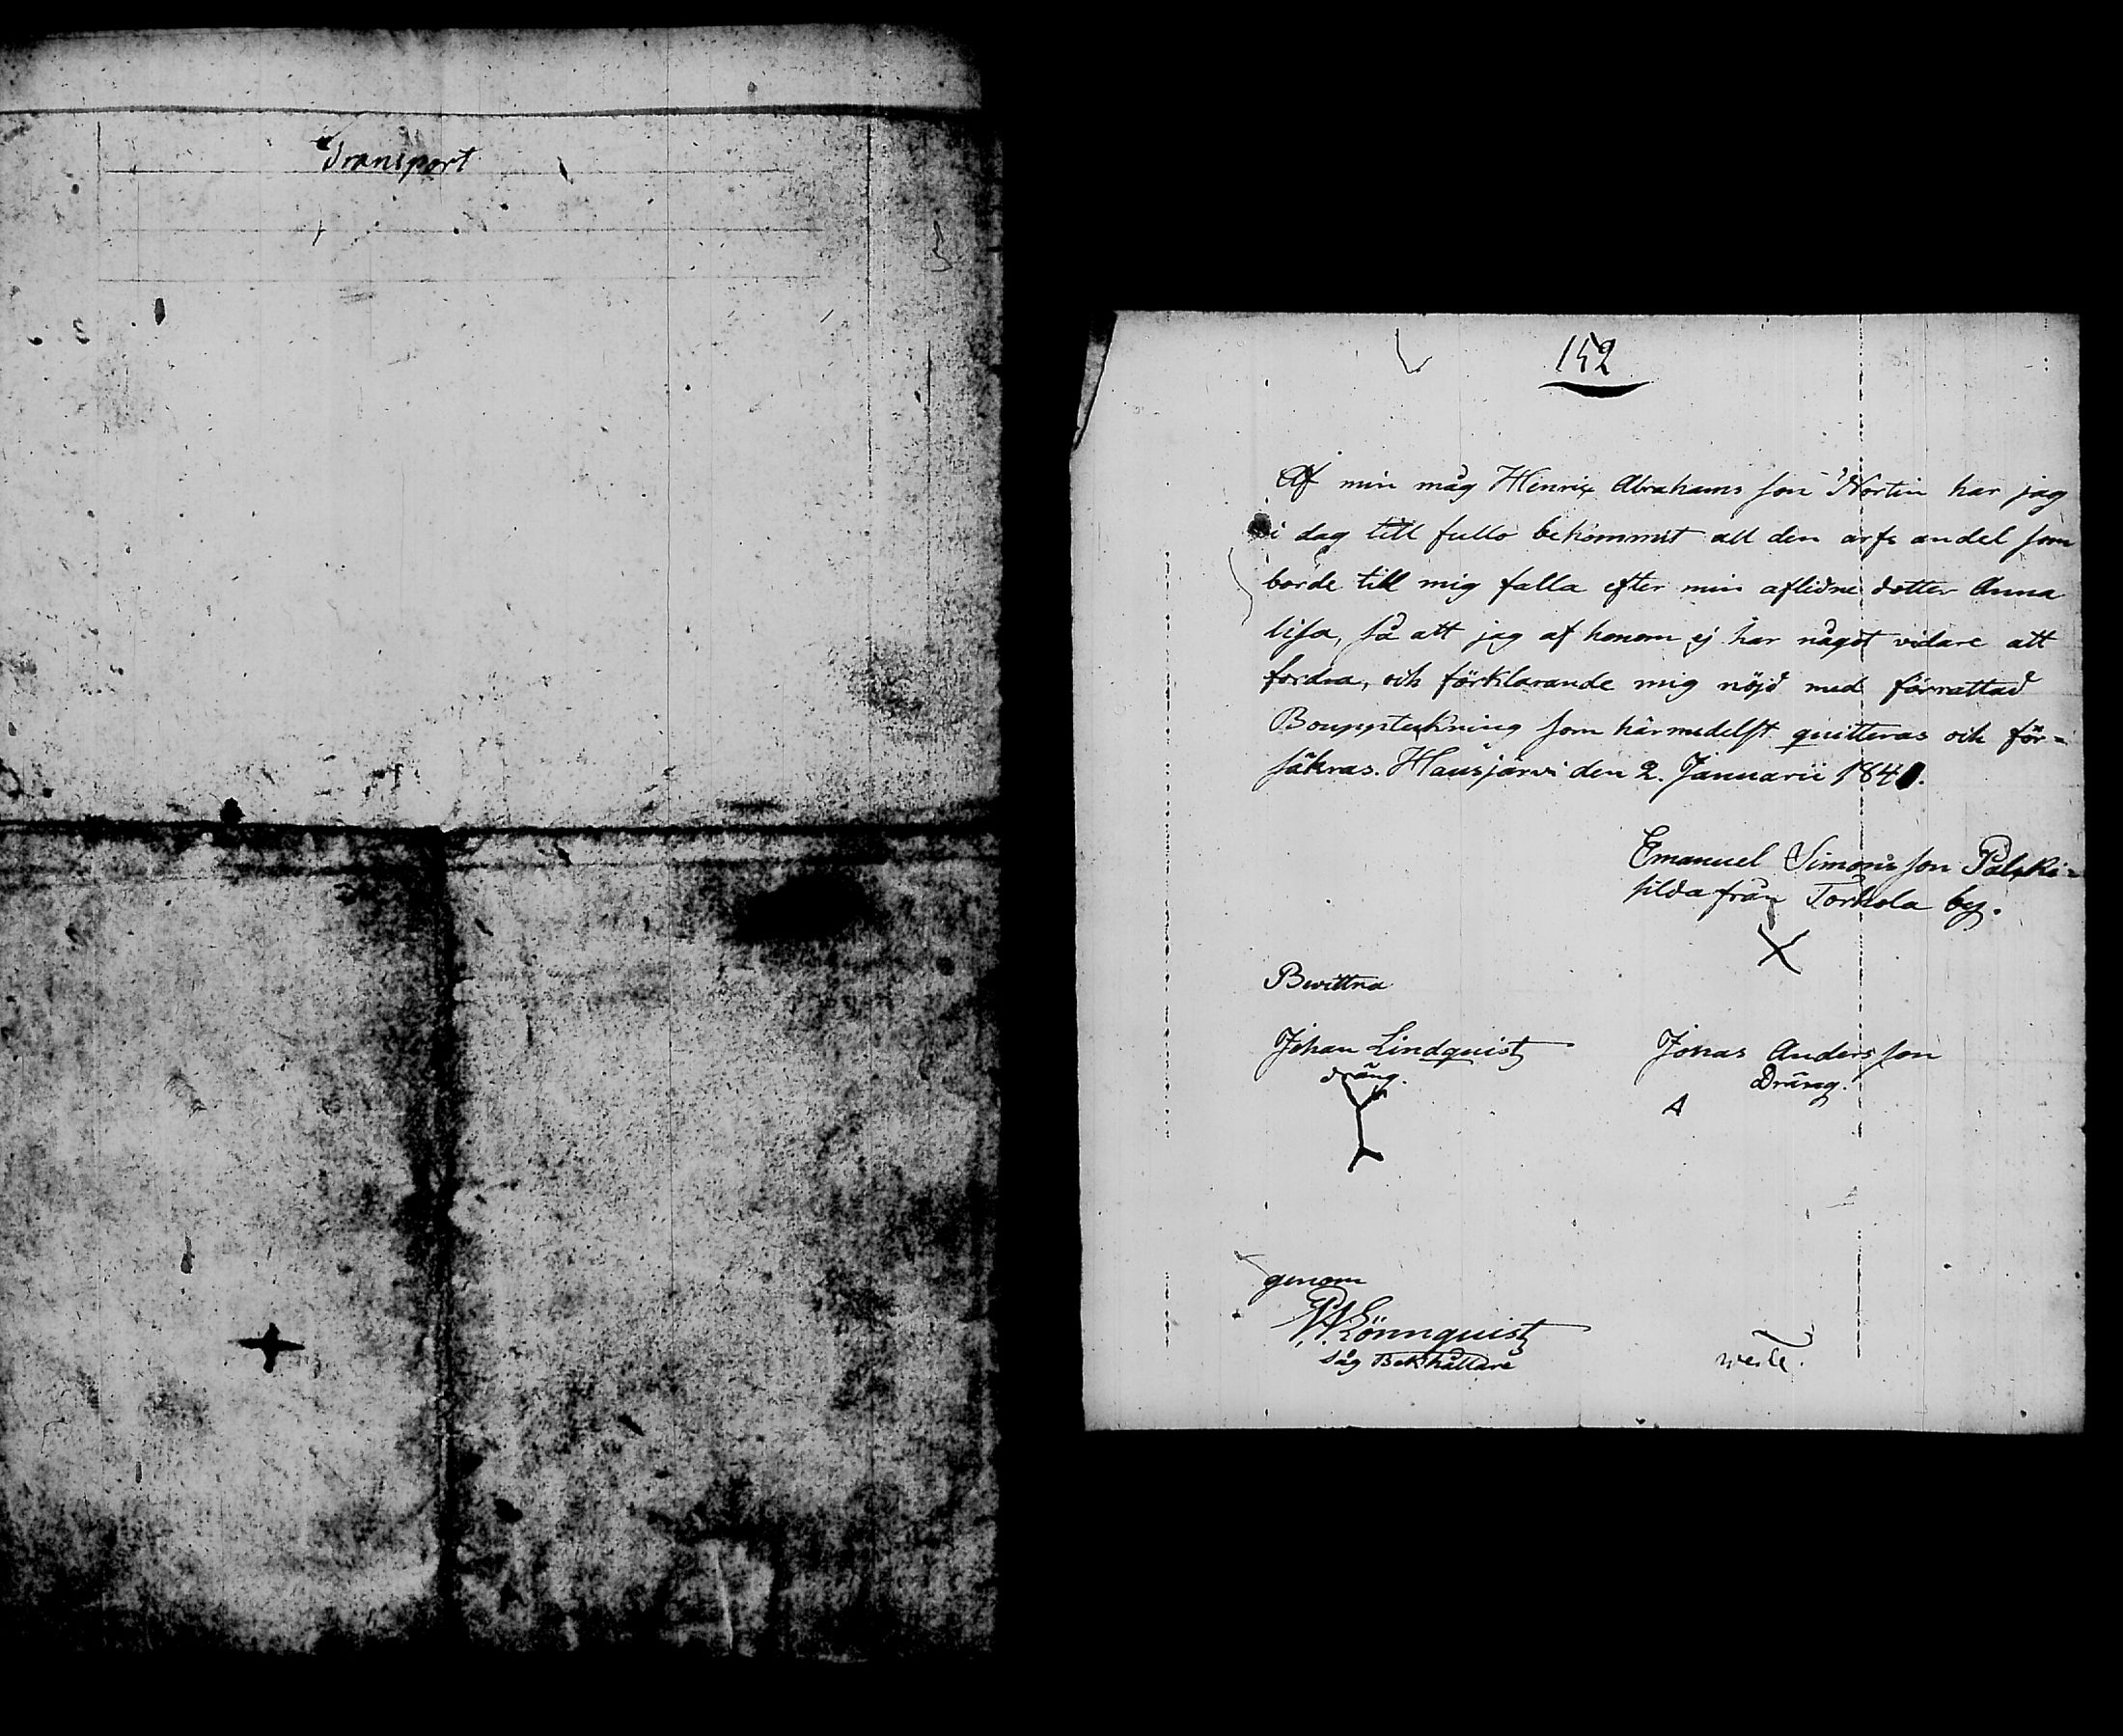 Transport
152
Af min måg Henrix Abrahams son Nortin har jag
i dag till fullo bekommit all den arfs andel som
borde till mig falla efter min aflidne dotter Anna
lisa, så att jag af honom ej har något vidare att
fordra, och förklarande mig nöjd med förrattad
Bouppteckning som härmedelst quitteras och för=
säkras. Hausjärvi den 2. Januarii 1841.
Emanuel Simons son Palski=
silda från Torhola by.
X
Bevittna
Johan Lindquist
dräng.
Jonas Andersson
Dräng.
A
genom
Rönnquist
Såg Bokhållare